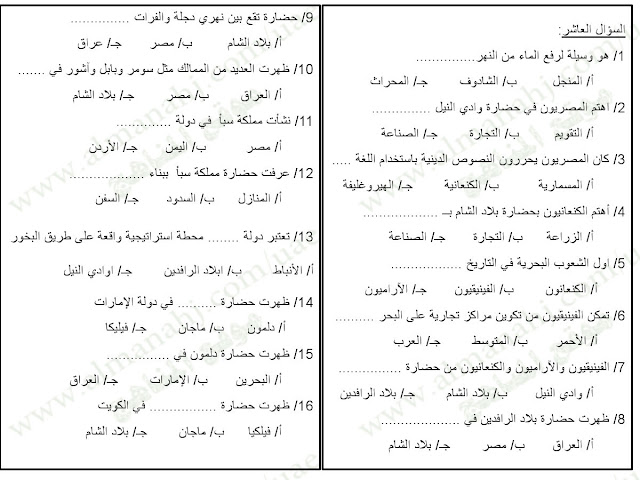 السؤال العاشر:
1/ هو وسيلة لرفع الماء من النهر...............
أ/ المنجل ب/ الشادوف جـ/ المحراث
2/ اهتم المصريون في حضارة وادي النيل ..............
أ/ التقويم ب/ التجارة جـ/ الصناعة
3/ كان المصريون يحررون النصوص الدينية باستخدام اللغة .....
أ/ المسمارية ب/ الكنعانية جـ/ الهيروغليفة
4/ أهتم الكنعانيون بحضارة بلاد الشام بـ ..................
أ/ الزراعة ب/ التجارة جـ/ الصناعة
5/ اول الشعوب البحرية في التاريخ .................
أ/ الكنعانون ب/ الفينيقيون جـ/ الآراميون
6/ تمكن الفينيقيون من تكوين مراكز تجارية على البحر ..........
أ/ الأحمر ب/ المتوسط جـ/ العرب
7/ الفينيقيون والآراميون والكنعانيون من حضارة ...............
أ/ وادي النيل ب/ بلاد الشام جـ/ بلاد الرافدين
8/ ظهرت حضارة بلاد الرافدين في ....................
أ/ العراق ب/ مصر جـ/ بلاد الشام
9/ حضارة تقع بين نهري دجلة والفرات ...............
أ/ بلاد الشام ب/ مصر جـ/ عراق
10/ ظهرت العديد من الممالك مثل سومر وبابل وآشور في .......
أ/ العراق ب/ مصر جـ/ بلاد الشام
11/ نشأت مملكة سبأ في دولة ..............
أ/ مصر ب/ اليمن جـ/ الأردن
12/ عرفت حضارة مملكة سبأ ببناء ...................
أ/ المنازل ب/ السدود جـ/ السفن
13/ تعتبر دولة ........ محطة استراتيجية واقعة على طريق البخور
أ/ الأنباط ب/ ابلاد الرافدين جـ/ اوادي النيل
14/ ظهرت حضارة .......... في دولة الإمارات
أ/ دلمون ب/ ماجان جـ/ فيليكا
15/ ظهرت حضارة دلمون في ................
أ/ البحرين ب/ الإمارات جـ/ العراق
16/ ظهرت حضارة .............. في الكويت
أ/ فيلكيا ب/ ماجان جـ/ بلاد الشام
www.almanahj.com/uae